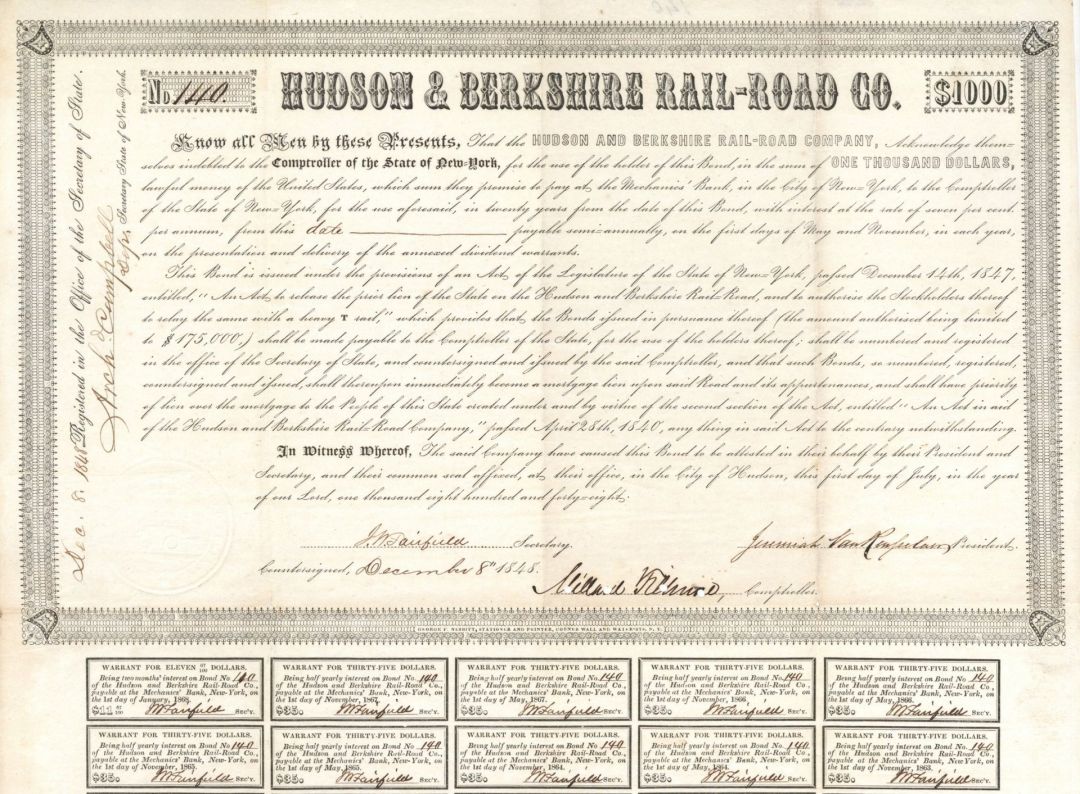 No 140.
HUDSON & BERKSHIRE RAIL-ROAD CO.
$1000
Know all Men by these Presents, That the HUDSON AND BERKSHIRE RAIL-ROAD COMPANY, Acknowledge them=
selves indebted to the Comptroller of the State of New-York, for the use of the holder of this Bond, in the sum of ONE THOUSAND DOLLARS,
lawful money of the United States, which sum they promise to pay at the Mechanics' Bank, in the City of New=York, to the Comptroller
of the State of New=York, for the use aforesaid, in twenty years from the date of this Bond, with interest at the rate of seven per cent
per annum, from this date payable semi=annually, on the first days of May and November, in each year,
on the presentation and delivery of the annexed dividend warrants.
This Bond is issued under the provisions of an Act of the Legislature of the State of New=York, passed December 14th, 1847.
entitled, "An Act to release the prior lien of the State on the Hudson and Berkshire Rail=Road, and to authorise the Stockholders thereof
to relay the same with a heavy T rail," which provides that the Bonds issued in pursuance thereof (the amount authorised being limited
to $175,000,) shall be made payable to the Comptroller of the State, for the use of the holders thereof; shall be numbered and registered
in the office of the Secretary of State, and countersigned and issued by the said Comptroller, and that such Bonds, so numbered, registered,
countersigned and issued, shall thereupon immediately become a mortgage lien upon said Road and its appurtenances, and shall have priority
of lien over the mortgage to the People of this State created under and by virtue of the second section of the Act, entitled "An Act in aid
of the Hudson and Berkshire Rail=Road Company," passed April 28th, 1840, any thing in said Act to the contrary notwithstanding.
In Witness Whereof, The said Company have caused this Bond to be attested in their behalf by their President and
Secretary, and their common seal affixed, at their office, in the City of Hudson, this first day of July, in the year
of our Lord, one thousand eight hundred and forty=eight.
J W Fairfield Secretary.
Jeremiah Van Rensselaer President.
Countersigned, December 8th 1848.
Millard Fillmore, Comptroller.
Dec. 8. 1848 Registered in the Office of the Secretary of State.
Arch d Campbell
Dep. Secretary State of New York.
GEORGE F. NESBITT, STATIONER AND PRINTER, CORNER WALL AND WATER-STS, N. Y.
WARRANT FOR ELEVEN 67/100 DOLLARS.
Being two months' interest on Bond No. 140
of the Hudson and Berkshire Rail-Road Co.,
payable at the Mechanics' Bank, New-York, on
the 1st day of January, 1868.
$11 67/100 JW Fairfield SEC'Y.
WARRANT FOR THIRTY-FIVE DOLLARS.
Being half yearly interest on Bond No. 140
of the Hudson and Berkshire Rail-Road Co.,
payable at the Mechanics' Bank, New-York, on
the 1st day of November, 1867.
$35. JW Fairfield SEC'Y.
WARRANT FOR THIRTY-FIVE DOLLARS.
Being half yearly interest on Bond No. 140
of the Hudson and Berkshire Rail-Road Co.,
payable at the Mechanics' Bank, New-York, on
the 1st day of May, 1867.
$35. JW Fairfield SEC'Y.
WARRANT FOR THIRTY-FIVE DOLLARS.
Being half yearly interest on Bond No. 140
of the Hudson and Berkshire Rail-Road Co.,
payable at the Mechanics' Bank, New-York, on
the 1st day of November, 1866.
$35. JW Fairfield SEC'Y.
WARRANT FOR THIRTY-FIVE DOLLARS.
Being half yearly interest on Bond No. 140
of the Hudson and Berkshire Rail-Road Co.,
payable at the Mechanics' Bank, New-York, on
the 1st day of May, 1866.
$35. JW Fairfield SEC'Y.
WARRANT FOR THIRTY-FIVE DOLLARS.
Being half yearly interest on Bond No. 140
of the Hudson and Berkshire Rail-Road Co.,
payable at the Mechanics' Bank, New-York, on
the 1st day of November, 1865.
$35. JW Fairfield SEC'Y.
WARRANT FOR THIRTY-FIVE DOLLARS.
Being half yearly interest on Bond No. 140
of the Hudson and Berkshire Rail-Road Co.,
payable at the Mechanics' Bank, New-York, on
the 1st day of May, 1865.
$35. JW Fairfield SEC'Y.
WARRANT FOR THIRTY-FIVE DOLLARS.
Being half yearly interest on Bond No. 140
of the Hudson and Berkshire Rail-Road Co.,
payable at the Mechanics' Bank, New-York, on
the 1st day of November, 1864.
$35. JW Fairfield SEC'Y.
WARRANT FOR THIRTY-FIVE DOLLARS.
Being half yearly interest on Bond No. 140
of the Hudson and Berkshire Rail-Road Co.,
payable at the Mechanics' Bank, New-York, on
the 1st day of May, 1864.
$35. JW Fairfield SEC'Y.
WARRANT FOR THIRTY-FIVE DOLLARS.
Being half yearly interest on Bond No. 140
of the Hudson and Berkshire Rail-Road Co.,
payable at the Mechanics' Bank, New-York, on
the 1st day of November, 1863.
$35. JW Fairfield SEC'Y.